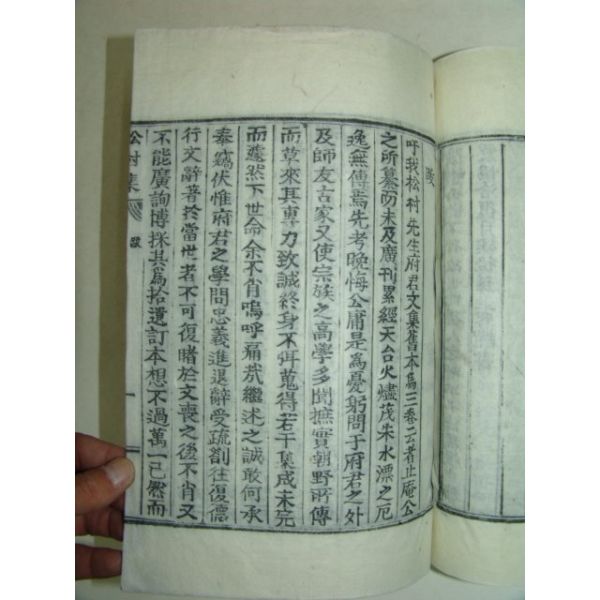 跋
呼我松村先生府君文集舊本爲三卷云者止庵公
之所纂而未及廣刊累經天台火燼茂朱水漂之厄
逸無傳焉先考晩悔公庸是爲憂躬問于府君之外
及師友古家又使宗族之高學多聞撫實朝野所傳
而草來其專力致誠終身不弭蒐得若干集成未完
而遽然下世命余不肖嗚呼痛哉繼述之誠敢何承
奉竊伏惟府君之學問忠義進退辭受疏劄往復儒
行文辭著於當世者不可復睹於文喪之後不肖又
不能廣詢博採其爲拾遺訂本想不過萬一已然而
松村集 跋 一